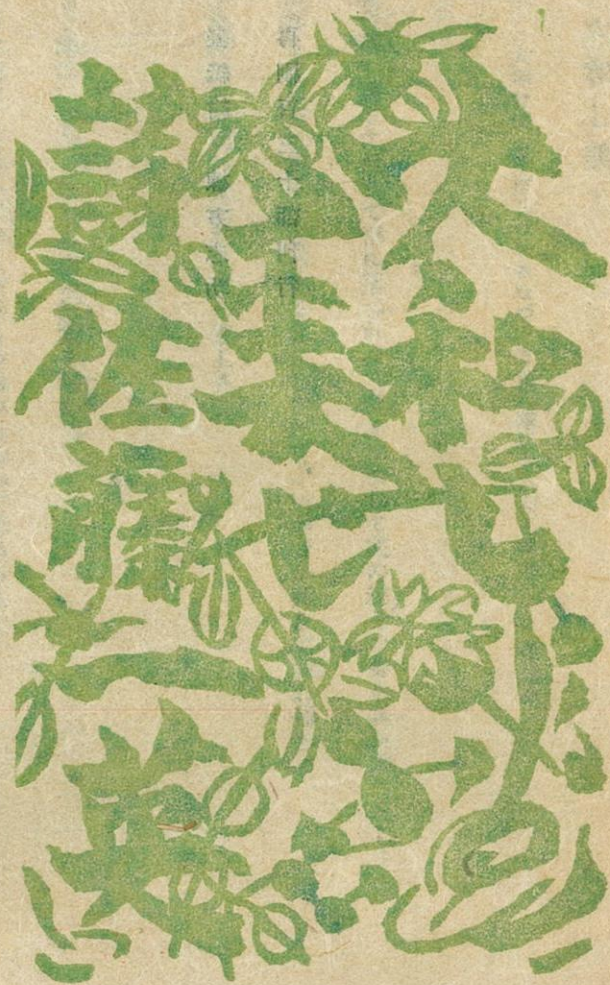 大和し
美し
佐藤一英